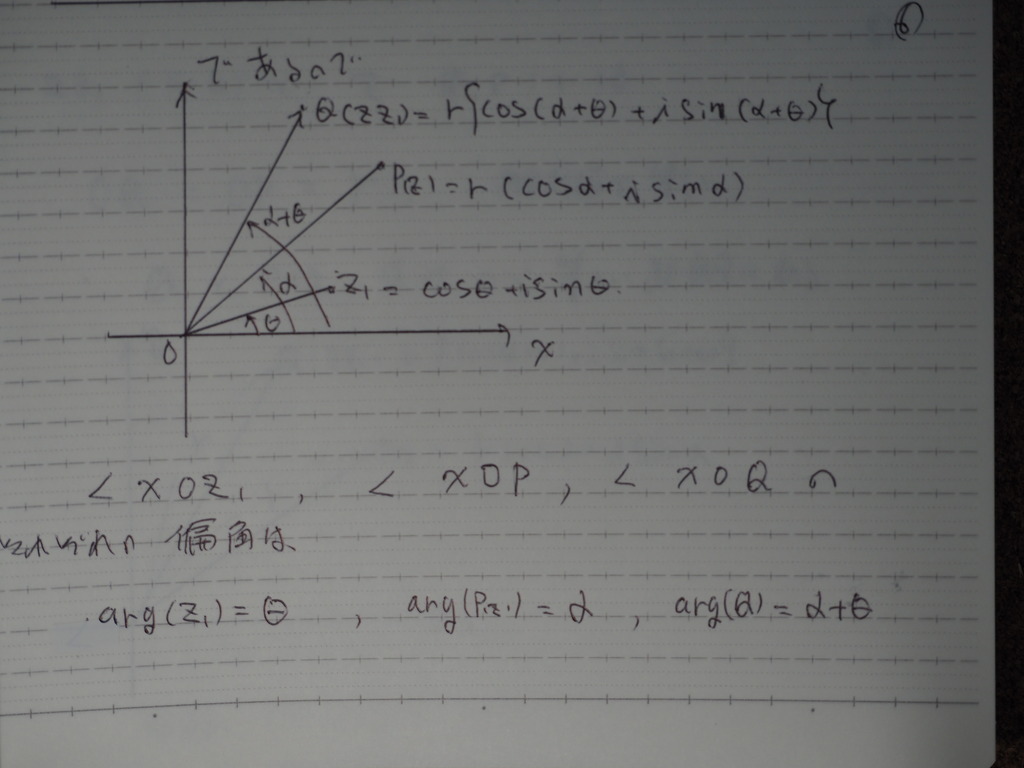 ⑥
であるので
Q(zz₁) = r{cos(α+θ) + i sin(α+θ)}
P(z) = r (cosα + i sinα)
α+θ
α
z₁ = cosθ + i sinθ.
θ
O
x
∠xOz₁, ∠xOP, ∠xOQの
それぞれの偏角は、
arg(z₁) = θ , arg(P(z)) = α , arg(Q) = α+θ